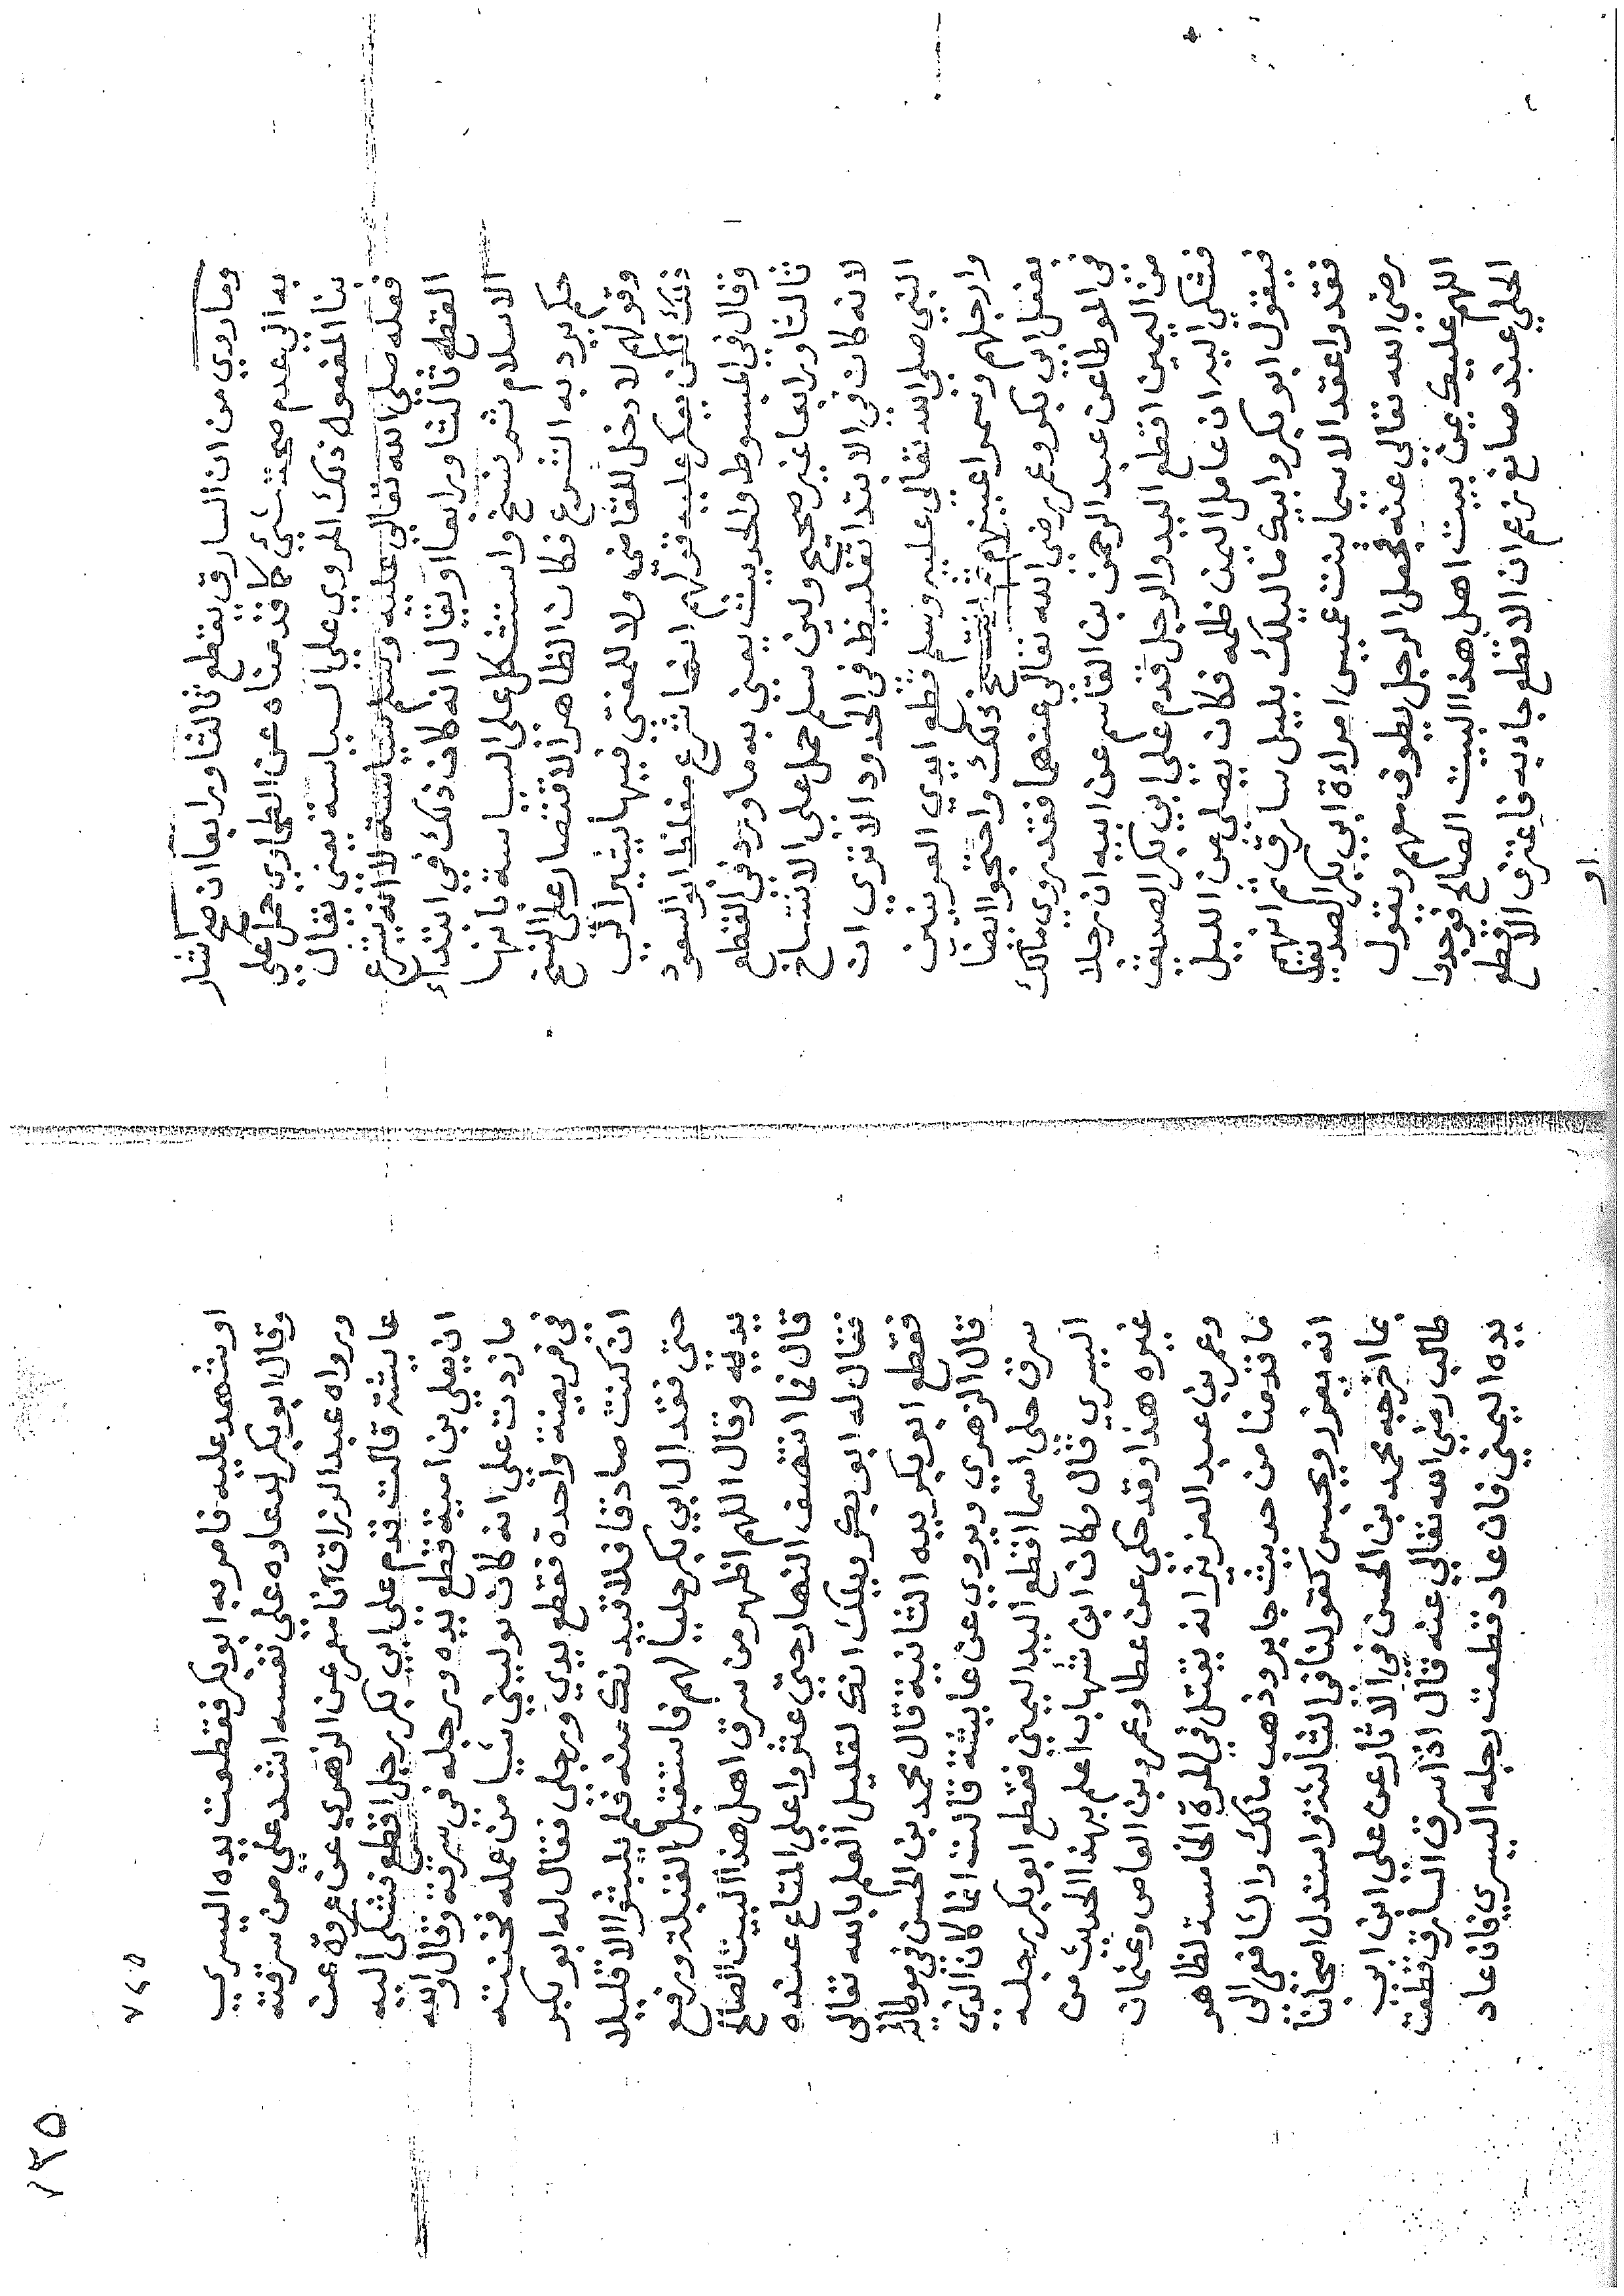 وما روي من ان السارق يقطع ثالثا ورابعا ان صح اشار
به الى عدم صحته شئ كما قدمناه عن الطحاوي حمل على
بنا المفعول ذلك المروي على السياسة يعني يقال
فعله صلى الله تعالى عليه وسلم سياسة لا انه يشرع
القطع ثالثا ورابعا او يقال انه كان ذلك في ابتداء
الاسلام ثم نسخ واستشكل على السياسة بانها
حكم يرد به الشرع فكان الظاهر الاقتصار على النسخ
وقولهم لا دخل للقاضي ولا للمفتي فيها يشير الى
ذلك لكن يعكر عليه قولهم انها شرع مغلظ ابو السعود
وقال في المبسوط والحديث يعني به ما ورد في القطع
ثالثا ورابعا غير صحيح ولين سلم حمل على الانتساخ
لانه كان في الابتدا تغليظ في الحدود الا ترى ان
النبي صلى الله تعالى عليه وسلم قطع ايدي العرنيين
وارجلهم وسمر اعينهم ثم انتسخ ذلك واحتجوا ايضا
بفعل ابي بكر وعمر رضي الله تعالى عنهما فقد روى مالك
في الموطا عن عبد الرحمن بن القاسم عن ابيه ان رجلا
من اليمن اقطع اليد والرجل قدم على ابي بكر الصديق
فشكى اليه ان عامل اليمن ظلمه فكان يصلي من الليل
فيقول ابو بكر وابيك ما ليلك بليل سارق ثم انهم
فقدوا عقد الاسما بنت عميس امراءة ابي بكر الصديق
رضى الله تعالى عنه فجعل الرجل يطوف معهم ويقول
اللهم عليك بمن بيت اهل هذا البيت الصالح فوجدوا
الحلي عند صائغ زعم ان الاقطع جاء به فاعترف الاقطع
او
١٢٥
٢٤٧
او شهد عليه فامر به ابو بكر فقطعت يده اليسرى
وقال ابو بكر لدعاوه على نفسه اشد علي من سرقته
ورواه عبد الرزاق انا معمر عن الزهري عن عروة عن
عايشة قالت قدم على ابي بكر رجل اقطع فشكى اليه
ان يعلي بن امية قطع يده ورجله في سرقة وقال والله
ما زدت علي انه كان يوليني شيا من عمله فخنته
في فريضة واحدة فقطع يدي ورجلي فقال له ابو بكر
ان كنت صادقا فلاقيدنك منه فلم يلبثوا الا قليلا
حتى فقد ال ابي بكر حليا لهم فاستقبل القبلة ورفع
يديه وقال اللهم اظهر من سرق اهل هذا البيت الصالح
قال فما انتصف النهار حتى عثروا على المتاع عنده
فقال له ابو بكر ويلك انك لقليل العلم بالله تعالى
فقطع ابو بكر يده الثانية قال محمد بن الحسن في موطائه
قال الزهري ويروي عن عايشة قالت انما كان الذي
سرق حلي اسما اقطع اليد اليمني فقطع ابو بكر رجله
اليسري قال وكان ابن شهاب اعلم بهذا الحديث من
غيره هذا وقد حكي عن عطا وعمرو بن العاص وعثمان
وعمر بن عبد العزيز انه يقتل في المرة الخامسة لظاهر
ما قدمنا من حديث جابر وذهب مالك والشافعي الى
انه يعزر ويحبس كقولنا في الثالثة واستدل اصحابنا
بما اخرجه محمد بن الحسن في الاثار عن علي ابن ابي
طالب رضي الله تعالى عنه قال اذا سرق السارق قطعت
يده اليمني فان عاد قطعت رجله اليسري فان عاد